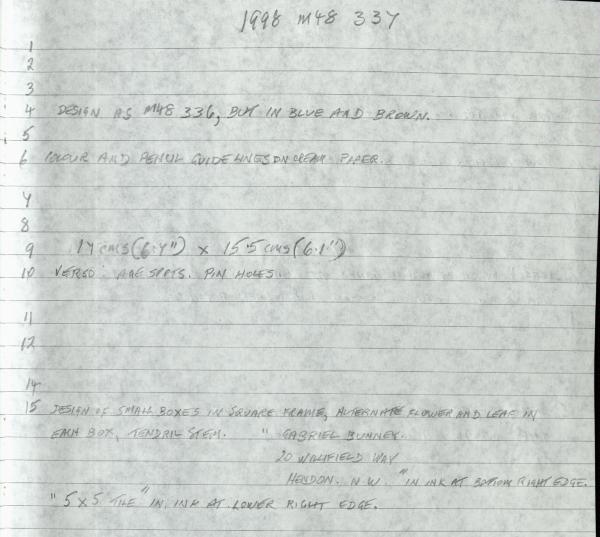 1998 M48 337
1
2
3
4 DESIGN AS M48 336, BUT IN BLUE AND BROWN.
5
6 COLOUR AND PENCIL GUIDELINES ON CREAM PAPER.
7
8
9 17 cms (6.7") x 15.5 cms (6.1")
10 VERSO: AGE SPOTS. PIN HOLES.
11
12
14
15 DESIGN OF SMALL BOXES IN SQUARE FRAME, ALTERNATE FLOWER AND LEAF IN
EACH BOX, TENDRIL STEM. " GABRIEL BUNNEY.
20 WAY
HENDON. N.W. " IN INK AT BOTTOM RIGHT EDGE.
" 5 x 5 TILE " IN INK AT LOWER RIGHT EDGE.